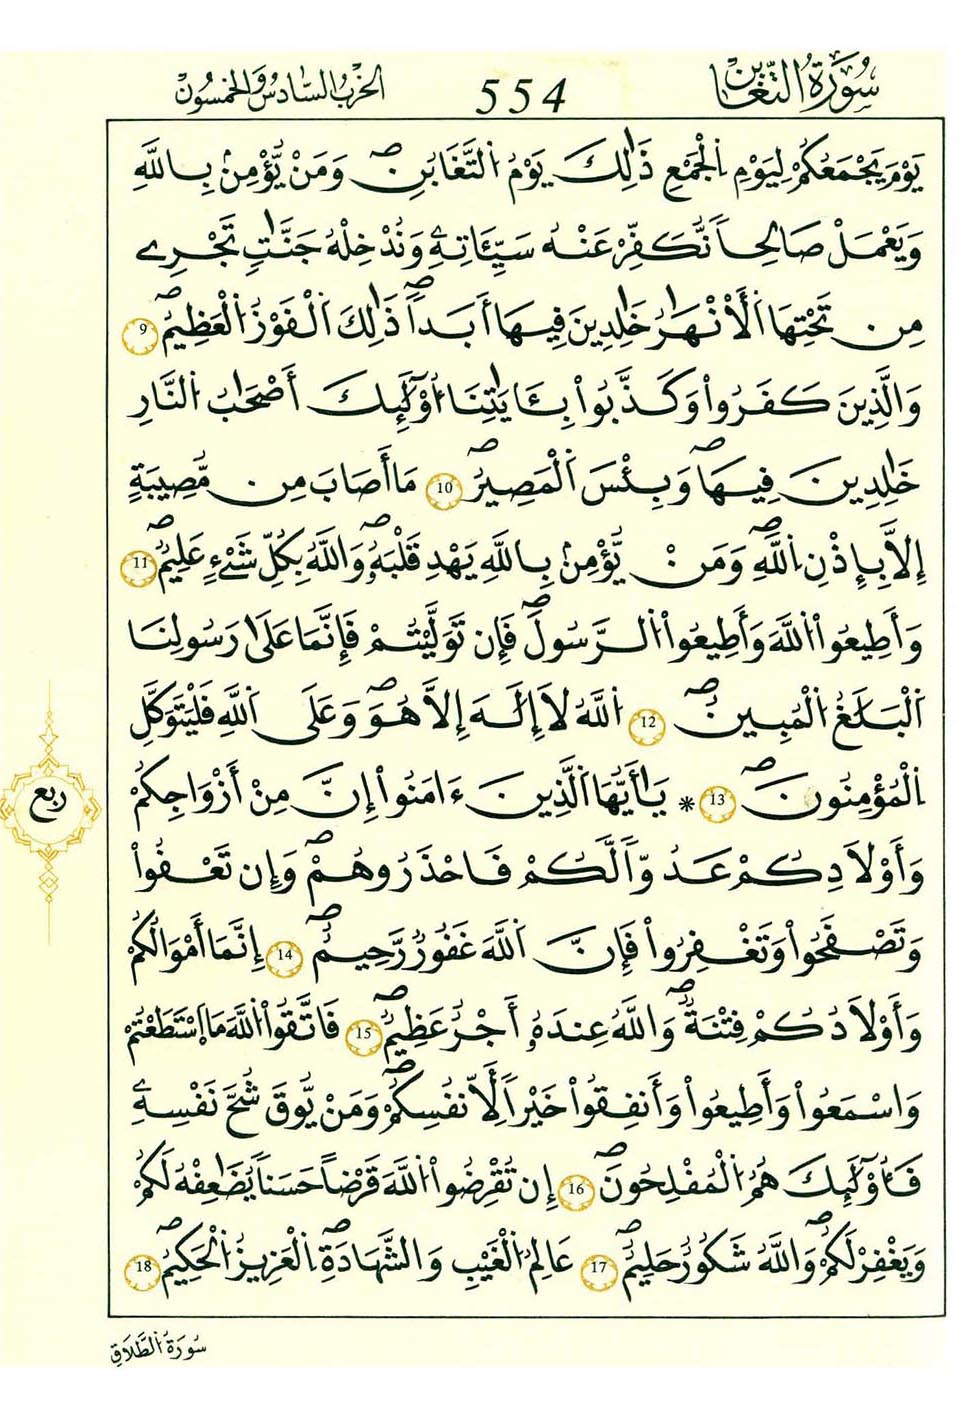 سُورَةُ التَّغَابُنِ 554 الحزب السادس والخمسون
يَوْمَ يَجْمَعُكُمْ لِيَوْمِ اِلْجَمْعِ ذَٰلِكَ يَوْمُ اُلتَّغَابُنِۖ وَمَنْ يُّؤْمِنۢ بِاللَّهِ
وَيَعْمَلْ صَالِحاً نُّكَفِّرْ عَنْهُ سَيِّـَٔاتِهِۦ وَنُدْخِلْهُ جَنَّٰتٍ تَجْرِے
مِن تَحْتِهَا اَ۬لْأَنْهَٰرُ خَٰلِدِينَ فِيهَا أَبَداًۖ ذَٰلِكَ اَ۬لْفَوْزُ اُ۬لْعَظِيمُۖ 9
وَالَّذِينَ كَفَرُواْ وَكَذَّبُواْ بِـَٔايَٰتِنَا أُوْلَٰٓئِكَ أَصْحَٰبُ اُ۬لنَّارِ
خَٰلِدِينَ فِيهَاۖ وَبِئْسَ اَ۬لْمَصِيرُۖ 10 مَا أَصَابَ مِن مُّصِيبَةٍ
إِلَّا بِإِذْنِ اِ۬للَّهِۖ وَمَنْ يُّؤْمِنۢ بِاللَّهِ يَهْدِ قَلْبَهُۥۖ وَاللَّهُ بِكُلِّ شَےْءٍ عَلِيمٌۖ 11
وَأَطِيعُواْ اُ۬للَّهَ وَأَطِيعُواْ اُ۬لرَّسُولَۖ فَإِن تَوَلَّيْتُمْ فَإِنَّمَا عَلَىٰ رَسُولِنَا
اَ۬لْبَلَٰغُ اُ۬لْمُبِينُۖ 12 اَ۬للَّهُ لَا إِلَٰهَ إِلَّا هُوَۖ وَعَلَى اَ۬للَّهِ فَلْيَتَوَكَّلِ
اِ۬لْمُؤْمِنُونَۖ 13 * يَٰأَيُّهَا اَ۬لَّذِينَ ءَامَنُواْ إِنَّ مِنْ أَزْوَٰجِكُمْ
وَأَوْلَٰدِكُمْ عَدُوّاً لَّكُمْ فَاحْذَرُوهُمْۖ وَإِن تَعْفُواْ
وَتَصْفَحُواْ وَتَغْفِرُواْ فَإِنَّ اَ۬للَّهَ غَفُورٌ رَّحِيمٌۖ 14 إِنَّمَا أَمْوَٰلُكُمْ
وَأَوْلَٰدُكُمْ فِتْنَةٌۖ وَاللَّهُ عِندَهُۥ أَجْرٌ عَظِيمٌۖ 15 فَاتَّقُواْ اُ۬للَّهَ مَا اَ۪سْتَطَعْتُمْ
وَاسْمَعُواْ وَأَطِيعُواْ وَأَنفِقُواْ خَيْراً لِّأَنفُسِكُمْۖ وَمَنْ يُّوقَ شُحَّ نَفْسِهِۦ
فَأُوْلَٰٓئِكَ هُمُ اُ۬لْمُفْلِحُونَۖ 16 إِن تُقْرِضُواْ اُ۬للَّهَ قَرْضاً حَسَناً يُضَٰعِفْهُ لَكُمْ
وَيَغْفِرْ لَكُمْۖ وَاللَّهُ شَكُورٌ حَلِيمٌۖ 17 عَٰلِمُ اُ۬لْغَيْبِ وَالشَّهَٰدَةِۖ اِ۬لْعَزِيزُ اُ۬لْحَكِيمُۖ 18
ربع
سُورَةُ اُ۬لطَّلَاقِ